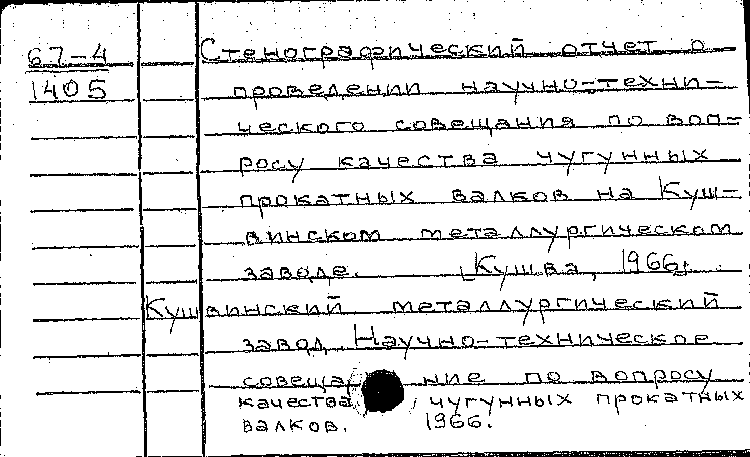 67-4
1405
Стенографический отчет о
проведении научно-техни-
ческого совещания по воп-
росу качества чугунных
прокатных валков на Куш-
винском металлургическом
заводе. [Кушва, 1966].
Кушвинский металлургический
завод. Научно-техническое
совещание по вопросу
качества чугунных прокатных
валков. 1966.